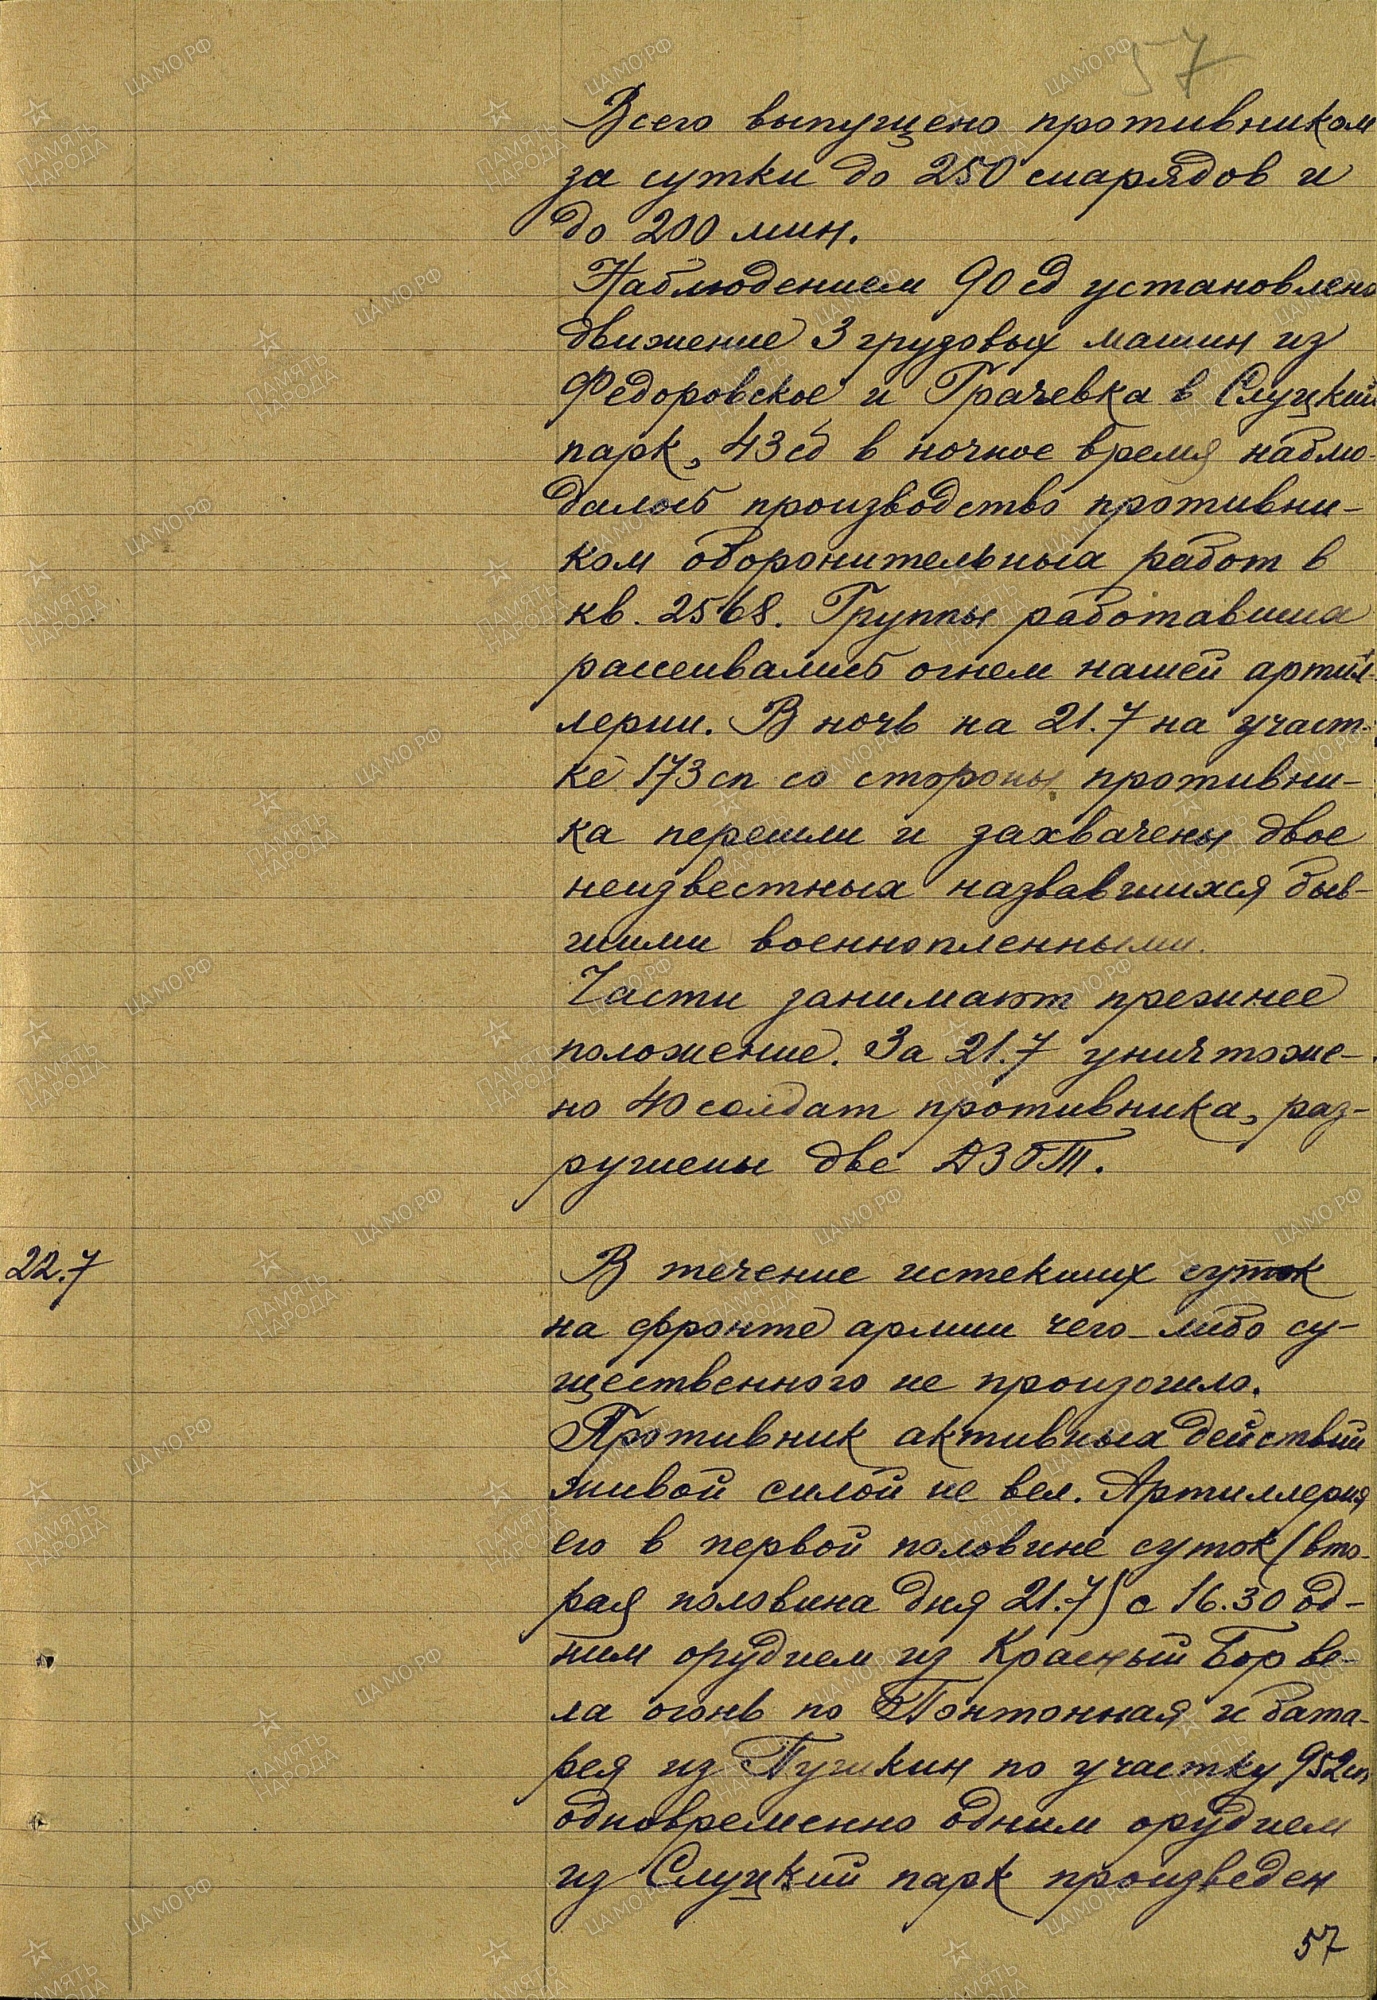 57
Всего выпущено противником
за сутки до 250 снарядов и
до 200 мин.
Наблюдением 90 сд установлено
движение 3 грузовых машин из
Федоровское и Грачевка в Слуцкий
парк, 43 сд в ночное время наблю-
далось производство противни-
ком оборонительных работ в
кв. 2568. Группы работавших
рассеивались огнем нашей артил-
лерии. В ночь на 21.7 на участ-
ке 173 сп со стороны противни-
ка перешли и захвачены двое
неизвестных назвавшихся быв-
шими военнопленными.
Части занимают прежнее
положение. За 21.7 уничтоже-
но 40 солдат противника, раз-
рушены две ДЗОТ.
22.7 В течение истекших суток
на фронте армии чего-либо су-
щественного не произошло.
Противник активных действий
живой силой не вел. Артиллерия
его в первой половине суток (вто-
рая половина дня 21.7) с 16.30 од-
ним орудием из Красный Бор ве-
ла огонь по Понтонная и бата-
рея из Пушкин по участку 952 сп
одновременно одним орудием
из Слуцкий парк произведен
57